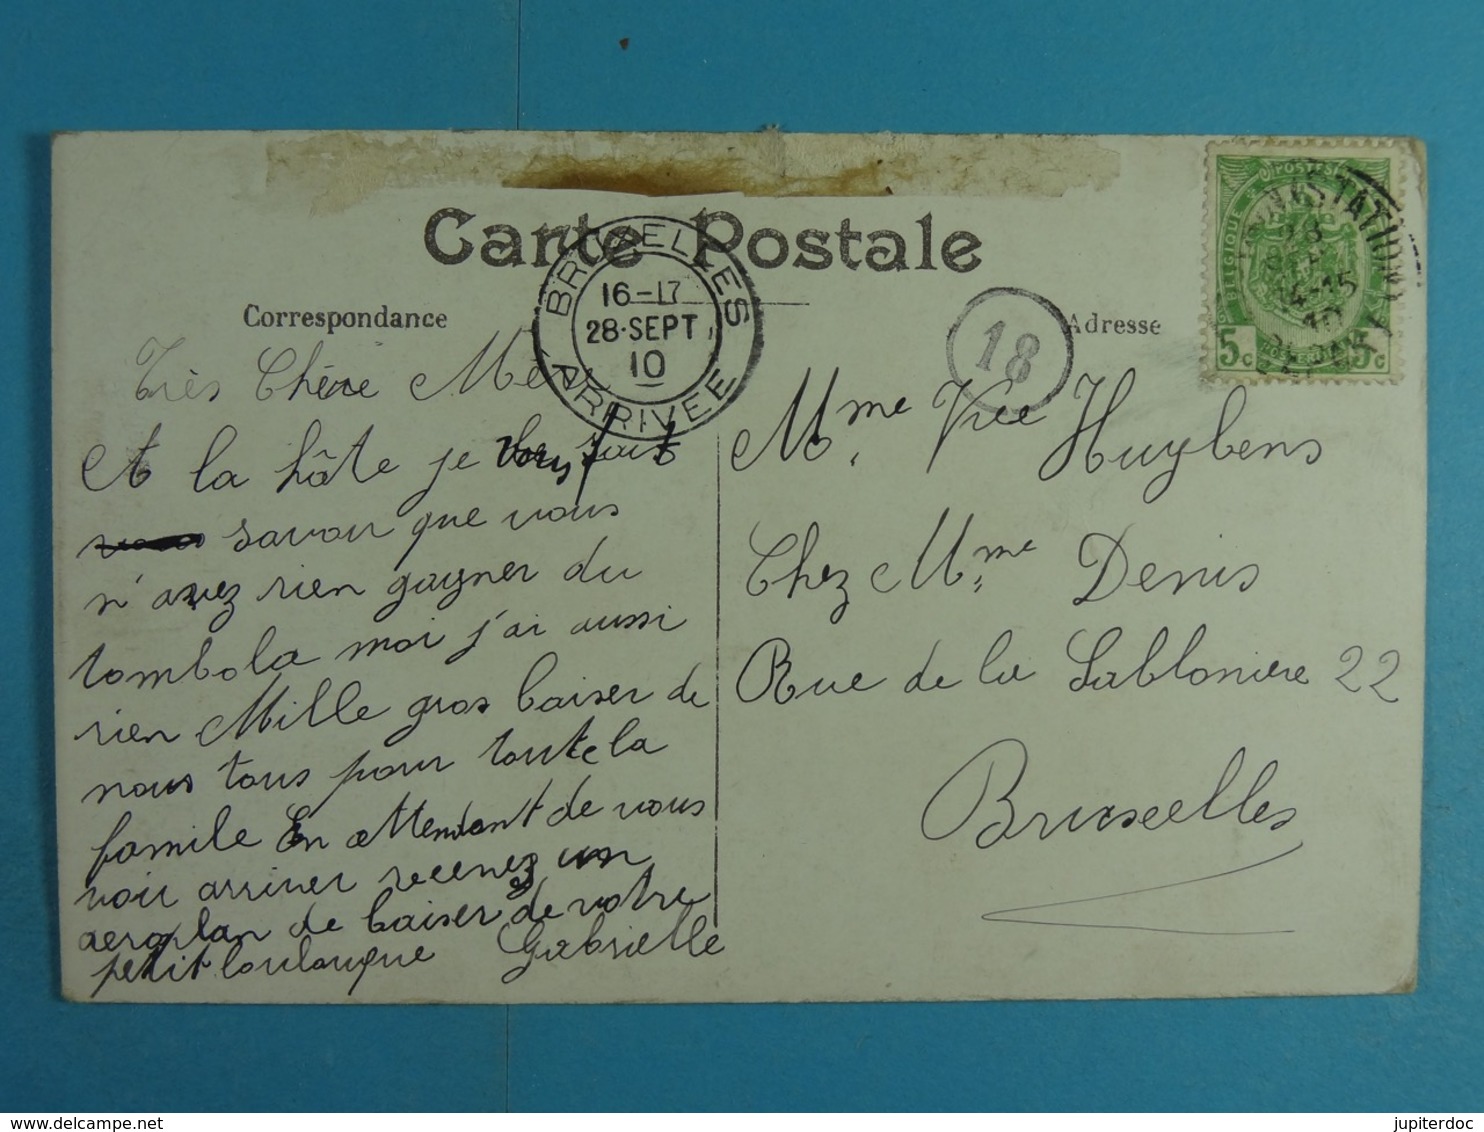 Carte Postale
Correspondance
Adresse
BRUXELLES
16-17
28·SEPT
10
ARRIVEE
18
BELGIQUE
POSTES
5c 5c
STATION
28
14-15
10
Très Chère
A la hâte je vous fait
savoir que vous
n'avez rien gagner du
tombola moi j'ai aussi
rien Mille gros baiser de
nous tous pour toute la
famile En attendant de vous
voir arriver recevez un
aeroplan de baiser de votre
petit
Gabrielle
Mme Vve Huybens
Chez Mme Denis
Rue de la Sablonière 22
Bruxelles
delcampe.net
jupiterdoc